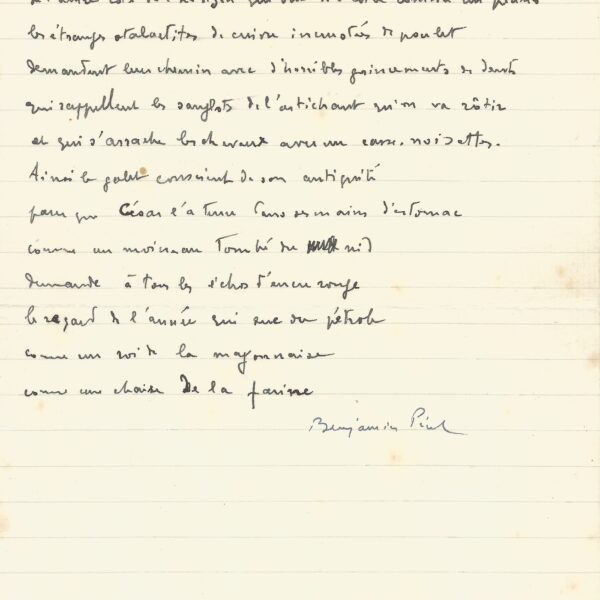 les étranges stalactites de cuivre incrustées de poulet
demandent leur chemin avec d'horribles grincements de dents
qui rappellent les sanglots de l'artichaut qu'on va rôtir
et qui s'arrache les cheveux avec un casse-noisettes.
Ainsi le galet conscient de son antiquité
parce que César l'a tenu dans ses mains d'estomac
comme un moineau tombé du nid
demande à tous les échos d'encre rouge
le regard de l'année qui sue du pétrole
comme un roi de la mayonnaise
comme une chaise de la farine
Benjamin Péret